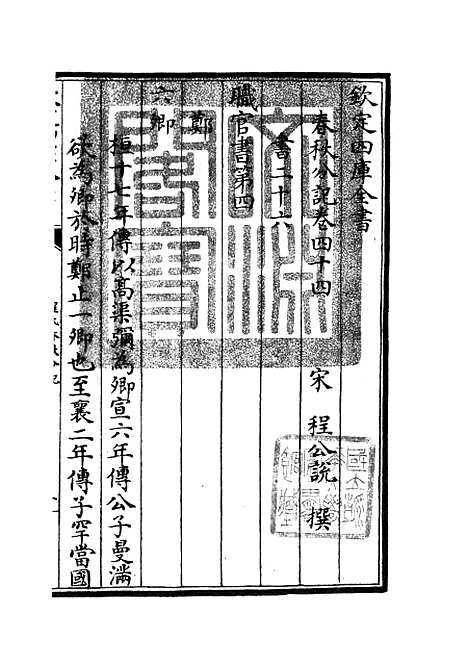 欽定四庫全書
春秋分記卷四十四
宋 程公說 撰
書二十六
職官書第四
鄭
六卿
桓十七年傳以高渠彌為卿宣六年傳公子曼滿
欲為卿於時鄭止一卿也至襄二年傳子罕當國